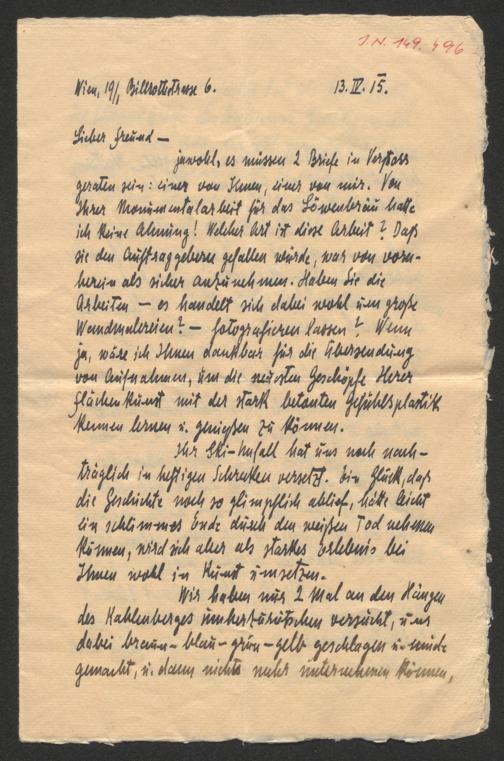 J.N. 149.496
Wien, 19/1, Billrothstrasse 6. 13. IV. 15.
Lieber Freund —
jawohl, es müssen 2 Briefe in Verstoss
geraten sein: einer von Ihnen, einer von mir. Von
Ihrer Monumentalarbeit für das Löwenbräu hatte
ich keine Ahnung! Welcher Art ist diese Arbeit? Daß
sie den Auftraggebern gefallen würde, war von vorn-
herein als sicher anzunehmen. Haben Sie die
Arbeiten — es handelt sich dabei wohl um große
Wandmalereien? — fotografieren lassen? Wenn
ja, wäre ich Ihnen dankbar für die Übersendung
von Aufnahmen, um die neuesten Geschöpfe Ihrer
Flächenkunst mit der stark betonten Gefühlsplastik
kennen lernen u. genießen zu können.
Ihr Ski-Unfall hat uns noch nach-
träglich in heftigen Schrecken versetzt. Ein Glück, daß
die Geschichte noch so glimpflich ablief, hätte leicht
ein schlimmes Ende durch den weißen Tod nehmen
können, wird sich aber als starkes Erlebnis bei
Ihnen wohl in Kunst umsetzen.
Wir haben nur 2 Mal an den Hängen
des Kahlenberges umherzurutschen versucht, uns
dabei braun-blau-grün-gelb geschlagen u. müde
gemacht, u. dann nichts mehr unternehmen können,